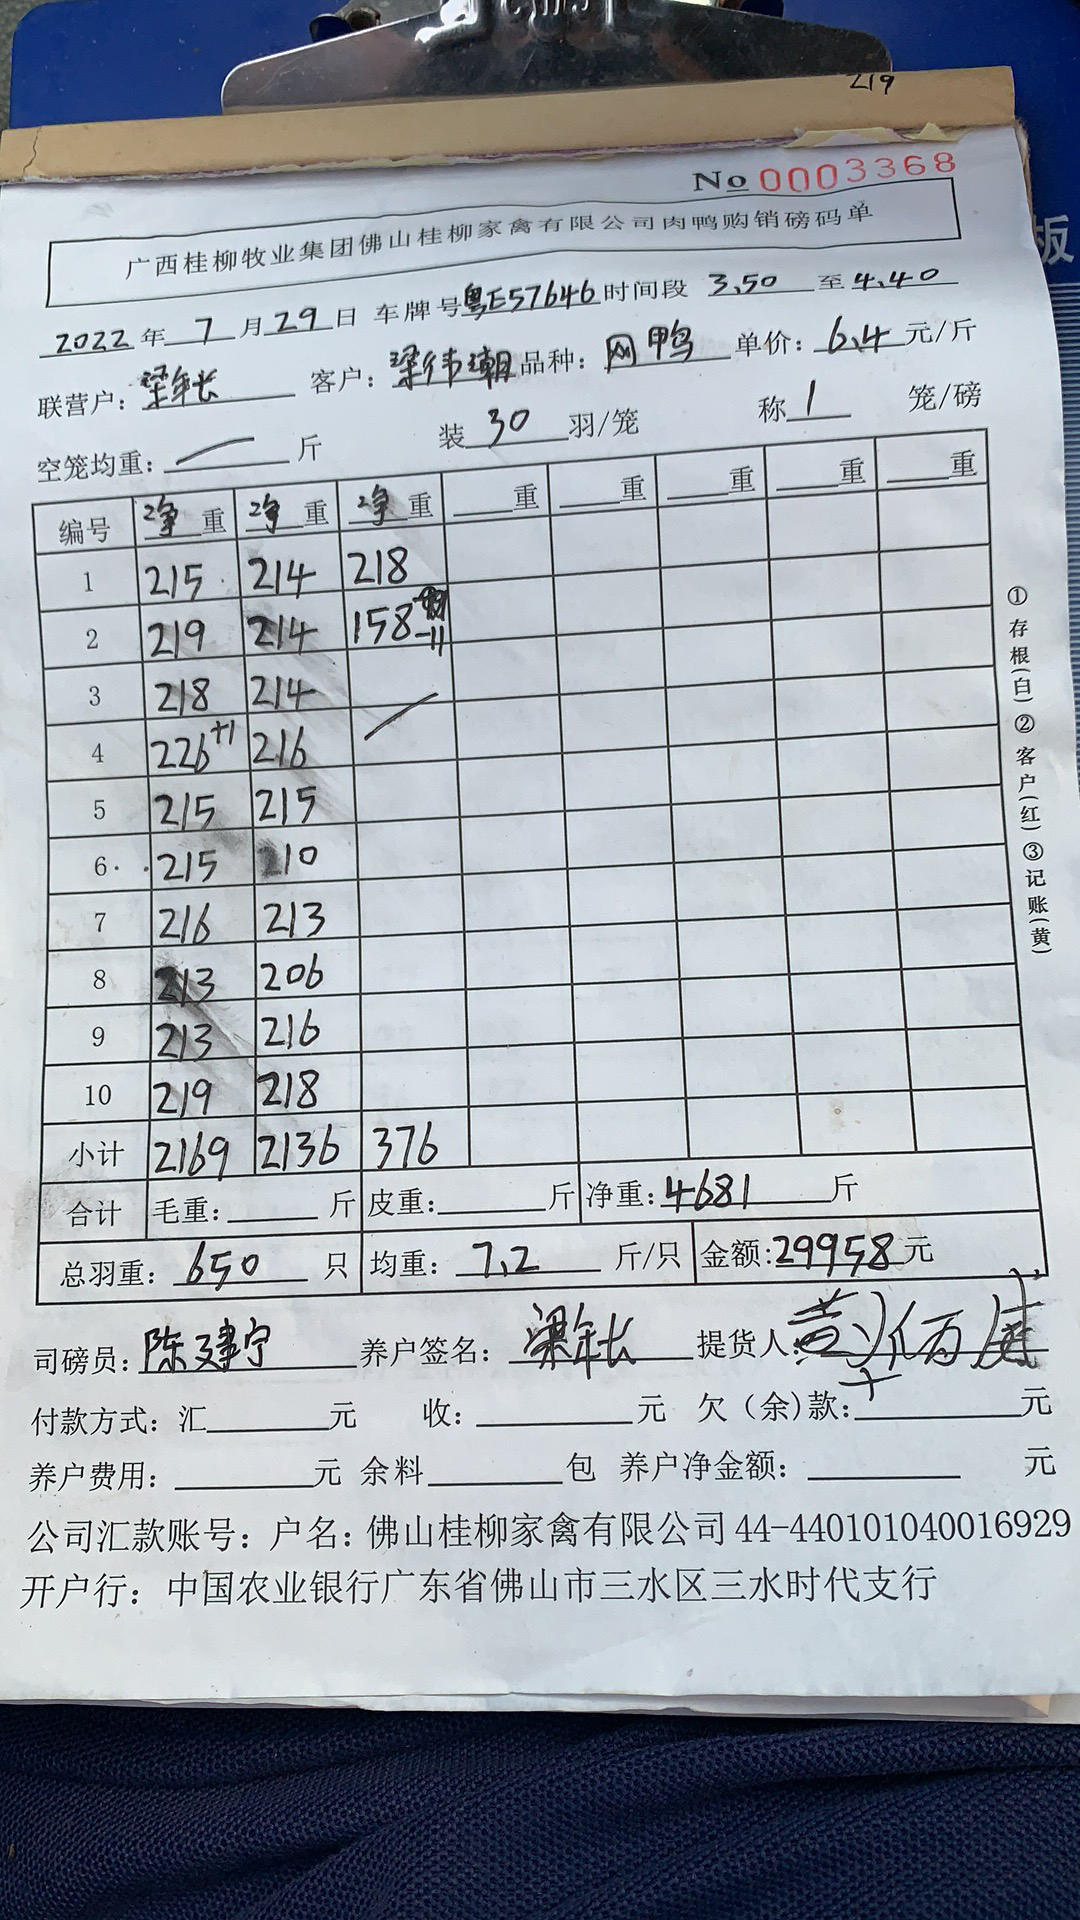 219
No 0003368
广西桂柳牧业集团佛山桂柳家禽有限公司肉鸭购销磅码单
板
2022年7月29日 车牌号粤E57646时间段 3.50 至4.40
联营户：梁年长 客户：梁伟潮品种：网鸭 单价：6.4元/斤
空笼均重：— 斤 装30羽/笼 称1 笼/磅
编号 净重 净重 净重 重 重 重 重 重
1 215 214 218
2 219 214 158 -11
3 218 214
4 226+1 216
5 215 215
6 215 210
7 216 213
8 213 206
9 213 216
10 219 218
小计 2169 2136 376
合计 毛重： 斤 皮重： 斤 净重：4681 斤
总羽重：650 只 均重：7.2 斤/只 金额：29958元
司磅员：陈建宁 养户签名：梁年长 提货人
付款方式：汇 元 收： 元 欠（余）款： 元
养户费用： 元 余料 包 养户净金额： 元
公司汇款账号：户名：佛山桂柳家禽有限公司 44-440101040016929
开户行：中国农业银行广东省佛山市三水区三水时代支行
①存根(白)②客户(红)③记账(黄)